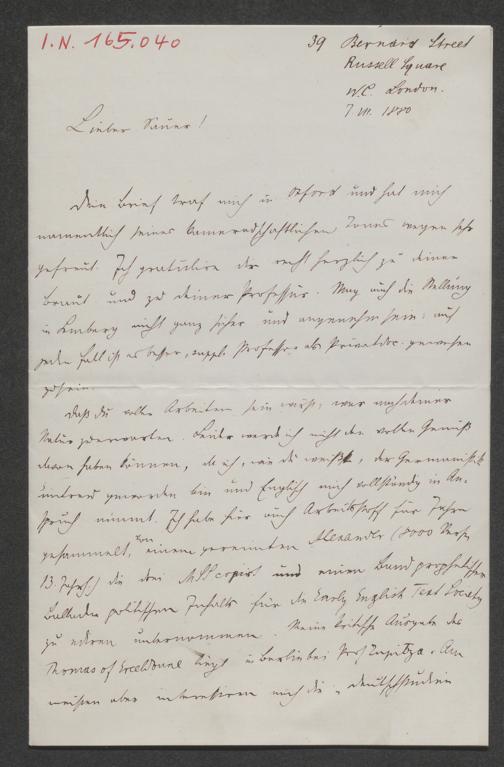 I.N. 165.040
39 Bernard Street
Russell Square
W.C. London.
7 VII. 1880
Lieber Sauer!
Dein Brief traf mich in Oxford und hat mich
namentlich seines kameradschaftlichen Tones wegen sehr
gefreut. Ich gratulire dir recht herzlich zu deiner
Braut und zu deiner Professur. Mag auch die Stellung
in Lemberg nicht ganz sicher und angenehm sein: auf
jeden Fall ist es besser, suppl. Professor als Privatdoc. gewesen
zu sein.
Daß du voller Arbeiten sein wirst, war nach deiner
Natur zu erwarten. Leider werde ich nicht den vollen Genuß
davon haben können, da ich, wie du weißt, der Germanistik
untreu geworden bin und Englisch mich vollständig in An-
spruch nimmt. Ich habe für auch Arbeitsstoff für Jahre
gesammelt, von einem gereimten Alexander (8000 Verse,
13. Jahrh.) die drei MSS copirt und einen Band prophetischer
Balladen politischen Inhalts für die Early English Text Society
zu ediren unternommen. Meine kritische Ausgabe des
Thomas of Erceldoune liegt in Berlin bei Prof Zupitza. Am
meisten aber interessiren mich die deutschstudien